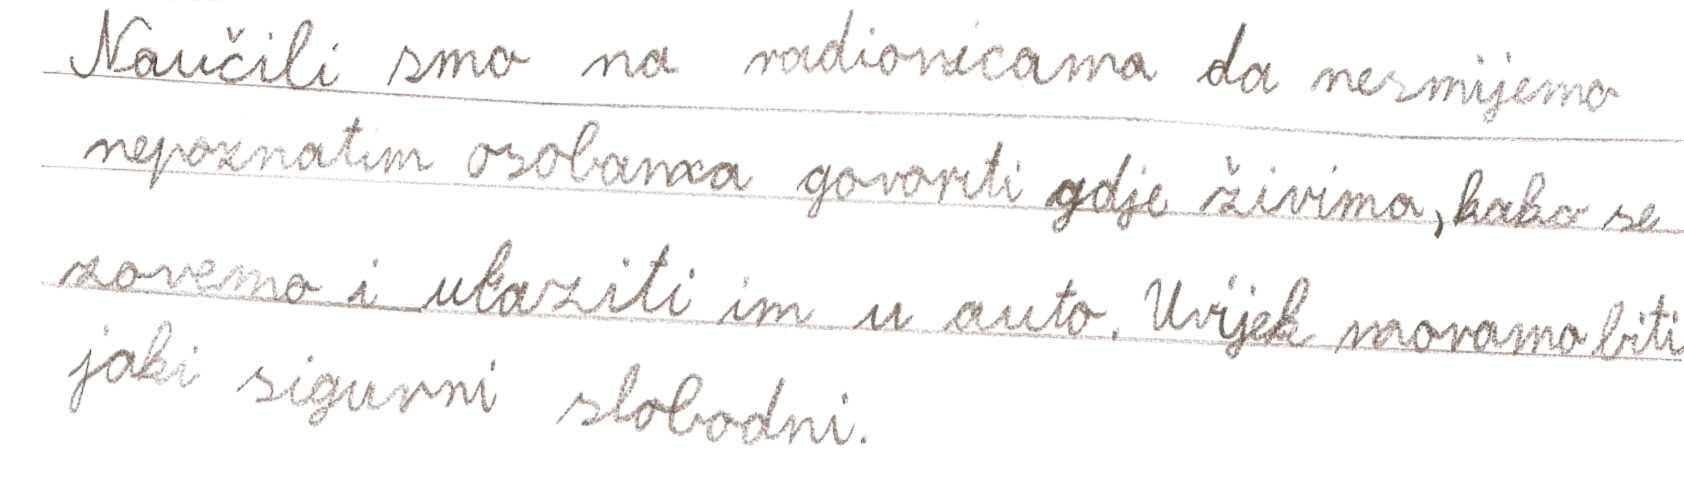 Naučili smo na radionicama da nesmijemo
nepoznatim osobama govoriti gdje živimo, kako se
zovemo i ulaziti im u auto. Uvijek moramo biti
jaki sigurni slobodni.